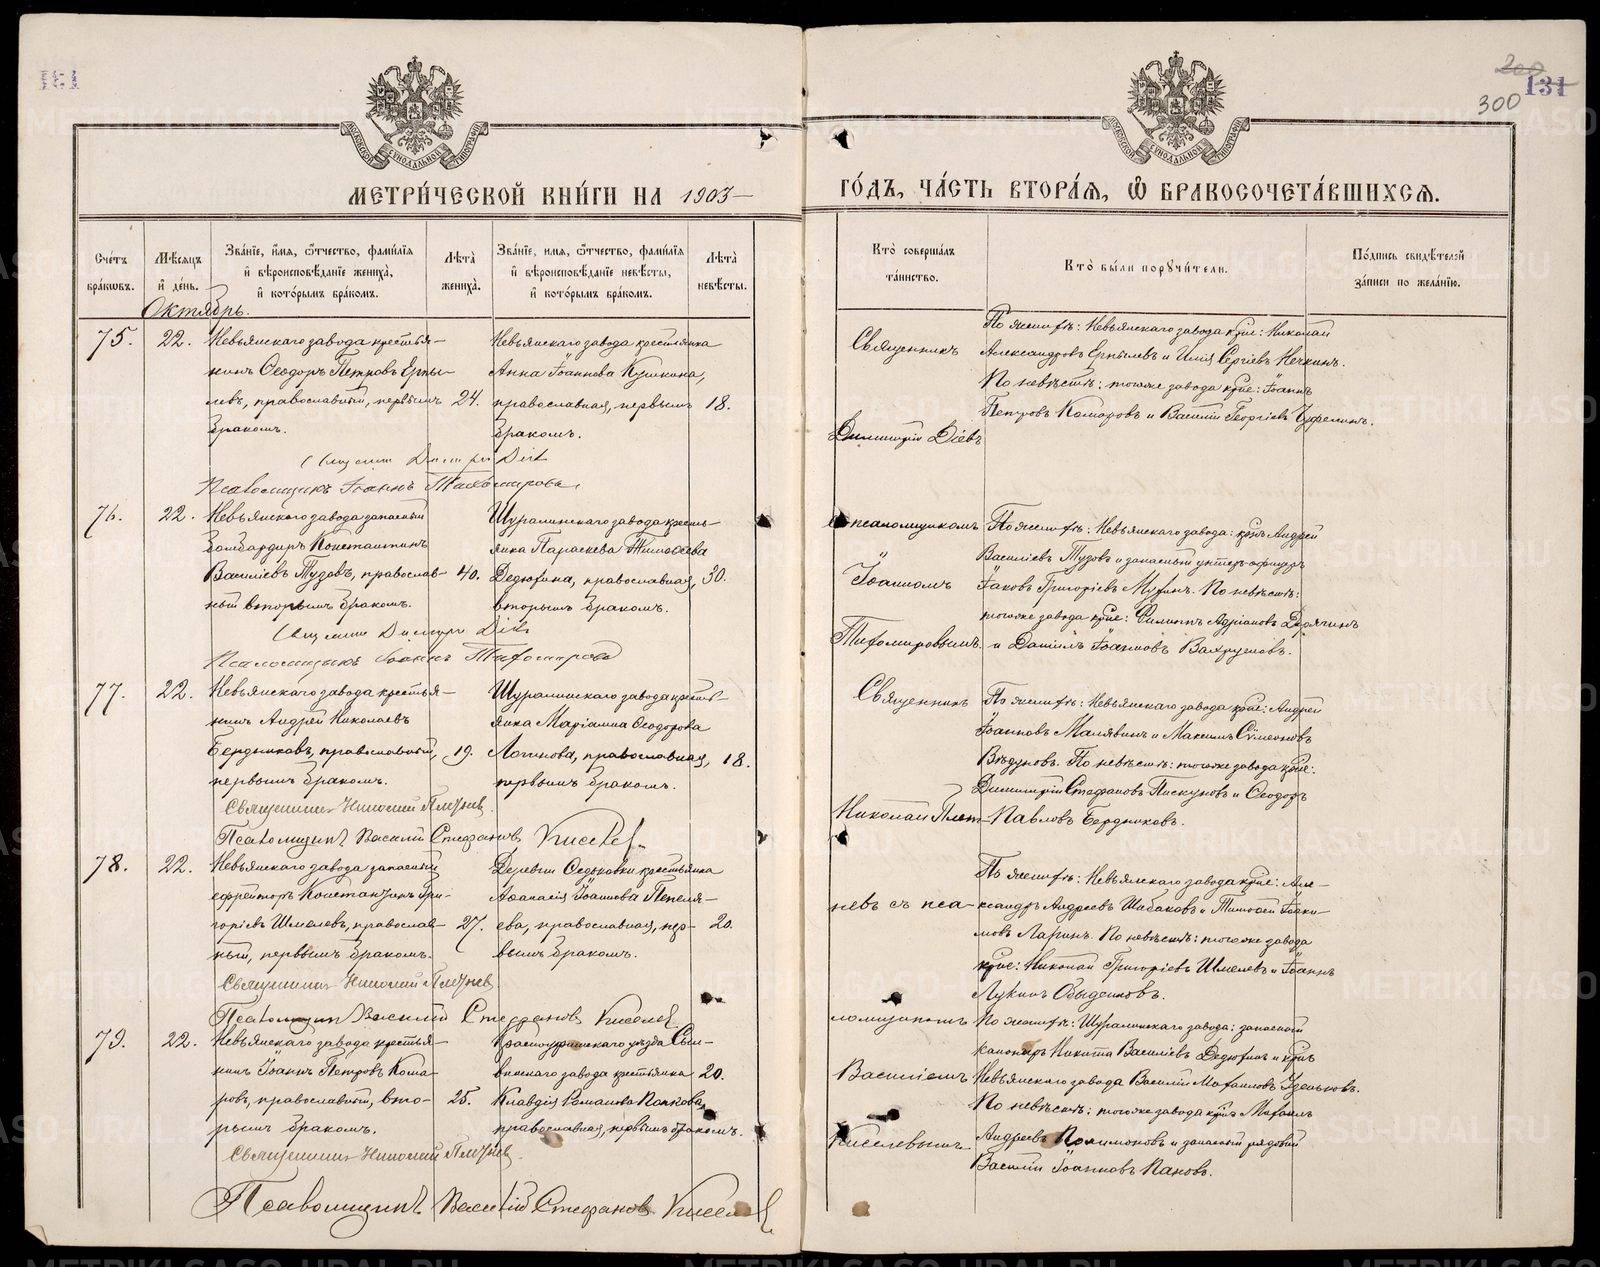 131
200
131
300
МОСКОВСКОЙ СѴНОДАЛЬНОЙ ТИПОГРАФІИ
МОСКОВСКОЙ СѴНОДАЛЬНОЙ ТИПОГРАФІИ
МЕТРИ́ЧЕСКОЙ КНИ́ГИ НА 1903
ГО́ДЪ, ЧА́СТЬ ВТОРА́Я, Ѿ БРАКОСОЧЕТА́ВШИХСЯ.
Сче́тъ бра́ковъ.
Мѣ́сяцъ и҆ день.
Зва́нїе, и҆́мя, ѻ҆́тчество, фами́лїя и҆ вѣроисповѣ́данїе жениха̀, и҆ кото́рымъ бра́комъ.
Лѣ́та жениха̀.
Зва́нїе, имя, ѻ҆́тчество, фами́лїя и҆ вѣроисповѣ́данїе невѣ́сты, и҆ кото́рымъ бра́комъ.
Лѣ́та невѣ́сты.
Кто̀ соверша́лъ та́инство.
Кто̀ бы́ли поручи́тели.
По́дпись свидѣ́телей за́писи по жела́нїю.
Октябрь.
75.
22.
Невьянскаго завода крестья-
нинъ Ѳеодоръ Петровъ Ерпы-
левъ, православный, первымъ
бракомъ.
24.
Невьянскаго завода крестьянка
Анна Іоаннова Кушкина,
православная, первымъ
бракомъ.
18.
Священникъ
Димитрій Діевъ
По женихѣ: Невьянскаго завода крѣе: Николай
Александровъ Ерпылевъ и Илія Сергіевъ Нечкинъ.
По невѣстѣ: тогоже завода крѣе: Іоаннъ
Петровъ Комаровъ и Василій Георгіевъ
Псаломщикъ Іоаннъ Тихомировъ
76.
22.
Невьянскаго завода запасный
бомбардиръ Константинъ
Василіевъ Тузовъ, православ-
ный вторымъ бракомъ.
40.
Шуралинскаго завода кресть-
янка Параскева Тимоѳеева
Дедюхина, православная,
вторымъ бракомъ.
30.
съ псаломщикомъ
Іоанномъ
Тихомировымъ.
По женихѣ: Невьянскаго завода: Андрей
Василіевъ Тузовъ и запасный унтеръ-офицеръ
Іаковъ Григоріевъ Мухинъ. По невѣстѣ:
тогоже завода крѣе: Филиппъ Адріановъ
и Даніилъ Іоанновъ Вахрушевъ.
Псаломщикъ Іоаннъ Тихомировъ
77.
22.
Невьянскаго завода крестья-
нинъ Андрей Николаевъ
Бердниковъ, православный,
первымъ бракомъ.
19.
Шуралинскаго завода кресть-
янка Маріанна Ѳеодорова
Логинова, православная,
первымъ бракомъ.
18.
Священникъ
Николай Плет-
По женихѣ: Невьянскаго завода крѣе: Андрей
Іоанновъ Малявинъ и Максимъ Сѵмеоновъ
Вѣдуновъ. По невѣстѣ: тогоже завода крѣе:
Димитрій Стефановъ Пискуновъ и Ѳеодоръ
Павловъ Бердниковъ.
Священникъ Николай Плетневъ
Псаломщикъ Василій Стефановъ Киселев
78.
22.
Невьянскаго завода запасный
ефрейторъ Константинъ Гри-
горіевъ Шмелевъ, православ-
ный, первымъ бракомъ.
27.
Деревни Ѳедьковки крестьянка
Аѳанасія Іоаннова Пепеля-
ева, православная, пер-
вымъ бракомъ.
20.
невъ съ пса-
По женихѣ: Невьянскаго завода крѣе: Але-
ксандръ Андреевъ Шибаковъ и Тимоѳей Іоаки-
мовъ Ларинъ. По невѣстѣ: тогоже завода
крѣе: Николай Григоріевъ Шмелевъ и Іоаннъ
Лукинъ Обыденновъ.
Священникъ Николай Плетневъ
Псаломщикъ Василій Стефановъ Киселев
79.
22.
Невьянскаго завода крестья-
нинъ Іоаннъ Петровъ Кома-
ровъ, православный, вто-
рымъ бракомъ.
25.
Красноуфимскаго уѣзда Сыл-
винскаго завода крестьянка
Клавдія Романова Попкова,
православная, первымъ бракомъ.
20.
ломщикомъ
Василіемъ
Киселевымъ.
По женихѣ: Шуралинскаго завода: запасный
канониръ Никита Василіевъ Дедюхинъ и крнъ
Невьянскаго завода Василій Михаиловъ
По невѣстѣ: тогоже завода Михаилъ
Андреевъ Полимоновъ и запасный рядовой
Василій Іоанновъ Пановъ.
Священникъ Николай Плетневъ
Псаломщикъ Василій Стефановъ Киселев